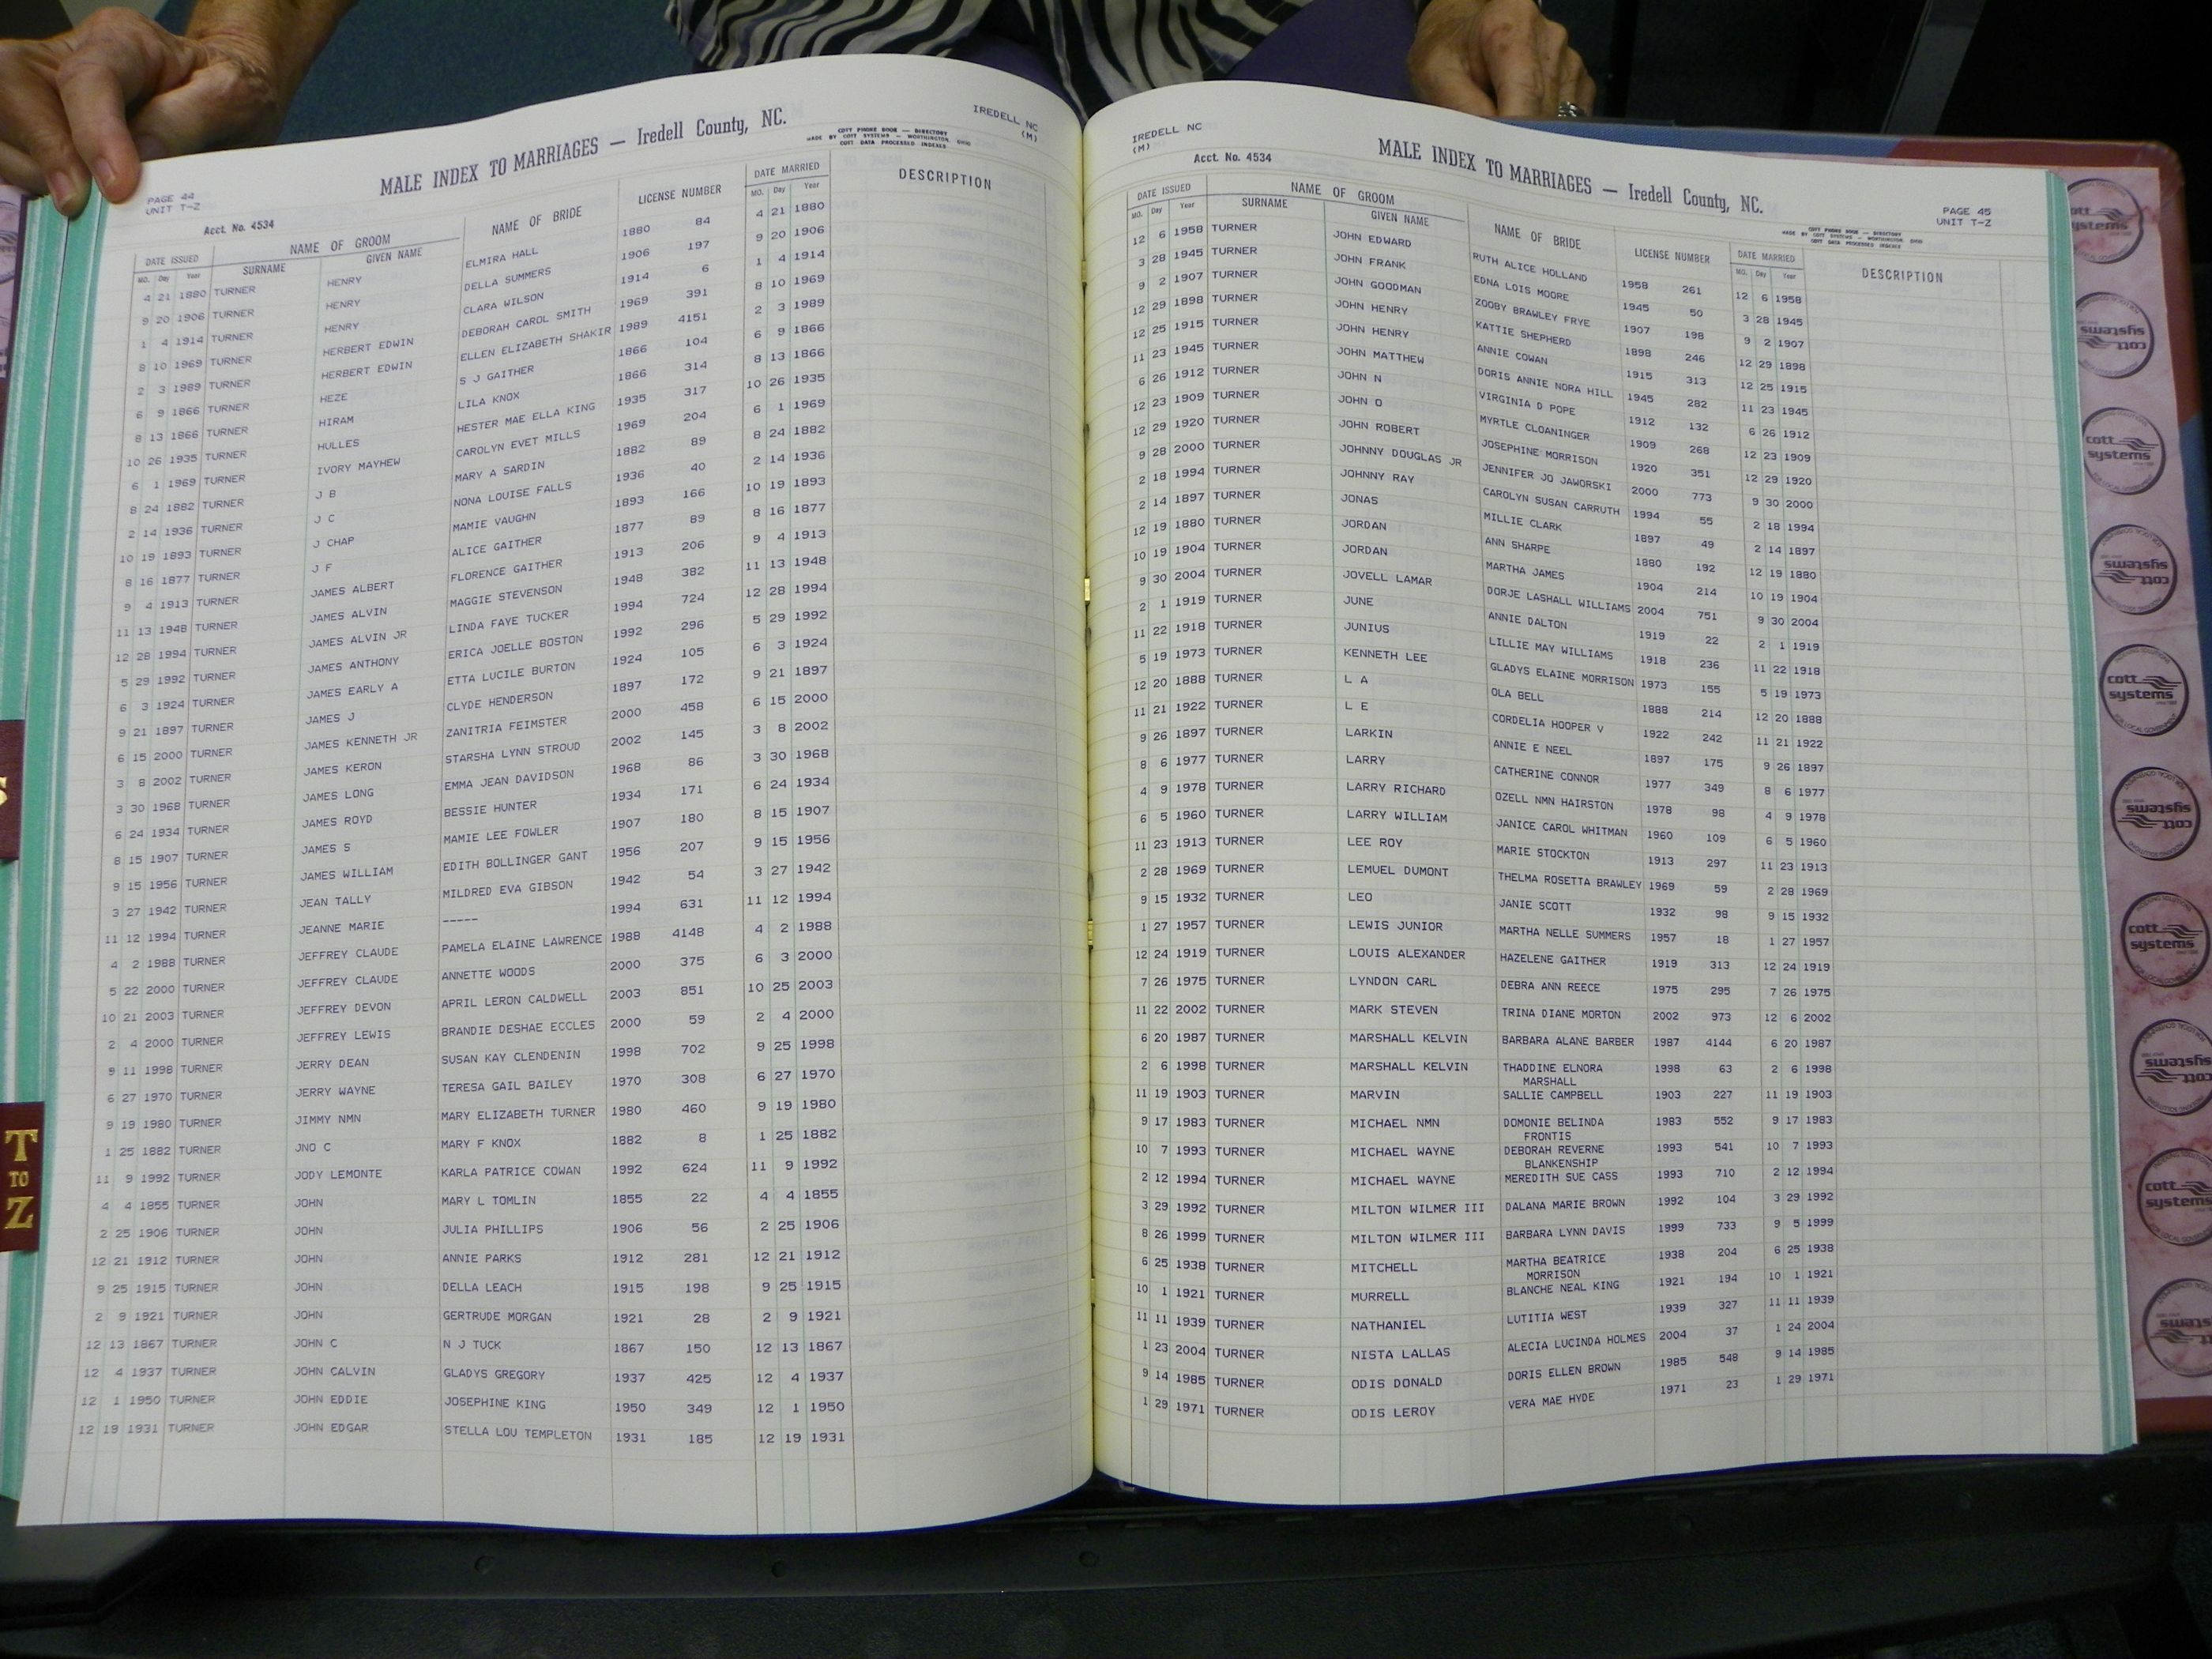 IREDELL NC
(M)
MALE INDEX TO MARRIAGES — Iredell County, NC.
COTT PHONE BOOK — DIRECTORY
MADE BY COTT SYSTEMS — WORTHINGTON, OHIO
COTT DATA PROCESSED INDEXES
PAGE 44
UNIT T-Z
Acct. No. 4534
DATE ISSUED NAME OF GROOM NAME OF BRIDE LICENSE NUMBER DATE MARRIED DESCRIPTION
MO. Day Year SURNAME GIVEN NAME MO. Day Year
4 21 1880 TURNER HENRY ELMIRA HALL 1880 84 4 21 1880
9 20 1906 TURNER HENRY DELLA SUMMERS 1906 197 9 20 1906
1 4 1914 TURNER HENRY CLARA WILSON 1914 6 1 4 1914
8 10 1969 TURNER HERBERT EDWIN DEBORAH CAROL SMITH 1969 391 8 10 1969
2 3 1989 TURNER HERBERT EDWIN ELLEN ELIZABETH SHAKIR 1989 4151 2 3 1989
6 9 1866 TURNER HEZE S J GAITHER 1866 104 6 9 1866
8 13 1866 TURNER HIRAM LILA KNOX 1866 314 8 13 1866
10 26 1935 TURNER HULLES HESTER MAE ELLA KING 1935 317 10 26 1935
6 1 1969 TURNER IVORY MAYHEW CAROLYN EVET MILLS 1969 204 6 1 1969
8 24 1882 TURNER J B MARY A SARDIN 1882 89 8 24 1882
2 14 1936 TURNER J C NONA LOUISE FALLS 1936 40 2 14 1936
10 19 1893 TURNER J CHAP MAMIE VAUGHN 1893 166 10 19 1893
8 16 1877 TURNER J F ALICE GAITHER 1877 89 8 16 1877
9 4 1913 TURNER JAMES ALBERT FLORENCE GAITHER 1913 206 9 4 1913
11 13 1948 TURNER JAMES ALVIN MAGGIE STEVENSON 1948 382 11 13 1948
12 28 1994 TURNER JAMES ALVIN JR LINDA FAYE TUCKER 1994 724 12 28 1994
5 29 1992 TURNER JAMES ANTHONY ERICA JOELLE BOSTON 1992 296 5 29 1992
6 3 1924 TURNER JAMES EARLY A ETTA LUCILE BURTON 1924 105 6 3 1924
9 21 1897 TURNER JAMES J CLYDE HENDERSON 1897 172 9 21 1897
6 15 2000 TURNER JAMES KENNETH JR ZANITRIA FEIMSTER 2000 458 6 15 2000
3 8 2002 TURNER JAMES KERON STARSHA LYNN STROUD 2002 145 3 8 2002
3 30 1968 TURNER JAMES LONG EMMA JEAN DAVIDSON 1968 86 3 30 1968
6 24 1934 TURNER JAMES ROYD BESSIE HUNTER 1934 171 6 24 1934
8 15 1907 TURNER JAMES S MAMIE LEE FOWLER 1907 180 8 15 1907
9 15 1956 TURNER JAMES WILLIAM EDITH BOLLINGER GANT 1956 207 9 15 1956
3 27 1942 TURNER JEAN TALLY MILDRED EVA GIBSON 1942 54 3 27 1942
11 12 1994 TURNER JEANNE MARIE ----- 1994 631 11 12 1994
4 2 1988 TURNER JEFFREY CLAUDE PAMELA ELAINE LAWRENCE 1988 4148 4 2 1988
5 22 2000 TURNER JEFFREY CLAUDE ANNETTE WOODS 2000 375 6 3 2000
10 21 2003 TURNER JEFFREY DEVON APRIL LERON CALDWELL 2003 851 10 25 2003
2 4 2000 TURNER JEFFREY LEWIS BRANDIE DESHAE ECCLES 2000 59 2 4 2000
9 11 1998 TURNER JERRY DEAN SUSAN KAY CLENDENIN 1998 702 9 25 1998
6 27 1970 TURNER JERRY WAYNE TERESA GAIL BAILEY 1970 308 6 27 1970
9 19 1980 TURNER JIMMY NMN MARY ELIZABETH TURNER 1980 460 9 19 1980
1 25 1882 TURNER JNO C MARY F KNOX 1882 8 1 25 1882
11 9 1992 TURNER JODY LEMONTE KARLA PATRICE COWAN 1992 624 11 9 1992
4 4 1855 TURNER JOHN MARY L TOMLIN 1855 22 4 4 1855
2 25 1906 TURNER JOHN JULIA PHILLIPS 1906 56 2 25 1906
12 21 1912 TURNER JOHN ANNIE PARKS 1912 281 12 21 1912
9 25 1915 TURNER JOHN DELLA LEACH 1915 198 9 25 1915
2 9 1921 TURNER JOHN GERTRUDE MORGAN 1921 28 2 9 1921
12 13 1867 TURNER JOHN C N J TUCK 1867 150 12 13 1867
12 4 1937 TURNER JOHN CALVIN GLADYS GREGORY 1937 425 12 4 1937
12 1 1950 TURNER JOHN EDDIE JOSEPHINE KING 1950 349 12 1 1950
12 19 1931 TURNER JOHN EDGAR STELLA LOU TEMPLETON 1931 185 12 19 1931
T
TO
Z
IREDELL NC
(M)
Acct. No. 4534
MALE INDEX TO MARRIAGES — Iredell County, NC.
COTT PHONE BOOK — DIRECTORY
MADE BY COTT SYSTEMS — WORTHINGTON, OHIO
COTT DATA PROCESSED INDEXES
PAGE 45
UNIT T-Z
DATE ISSUED NAME OF GROOM NAME OF BRIDE LICENSE NUMBER DATE MARRIED DESCRIPTION
MO. Day Year SURNAME GIVEN NAME MO. Day Year
12 6 1958 TURNER JOHN EDWARD RUTH ALICE HOLLAND 1958 261 12 6 1958
3 28 1945 TURNER JOHN FRANK EDNA LOIS MOORE 1945 50 3 28 1945
9 2 1907 TURNER JOHN GOODMAN ZOOBY BRAWLEY FRYE 1907 198 9 2 1907
12 29 1898 TURNER JOHN HENRY KATTIE SHEPHERD 1898 246 12 29 1898
12 25 1915 TURNER JOHN HENRY ANNIE COWAN 1915 313 12 25 1915
11 23 1945 TURNER JOHN MATTHEW DORIS ANNIE NORA HILL 1945 282 11 23 1945
6 26 1912 TURNER JOHN N VIRGINIA D POPE 1912 132 6 26 1912
12 23 1909 TURNER JOHN O MYRTLE CLOANINGER 1909 268 12 23 1909
12 29 1920 TURNER JOHN ROBERT JOSEPHINE MORRISON 1920 351 12 29 1920
9 28 2000 TURNER JOHNNY DOUGLAS JR JENNIFER JO JAWORSKI 2000 773 9 30 2000
2 18 1994 TURNER JOHNNY RAY CAROLYN SUSAN CARRUTH 1994 55 2 18 1994
2 14 1897 TURNER JONAS MILLIE CLARK 1897 49 2 14 1897
12 19 1880 TURNER JORDAN ANN SHARPE 1880 192 12 19 1880
10 19 1904 TURNER JORDAN MARTHA JAMES 1904 214 10 19 1904
9 30 2004 TURNER JOVELL LAMAR DORJE LASHALL WILLIAMS 2004 751 9 30 2004
2 1 1919 TURNER JUNE ANNIE DALTON 1919 22 2 1 1919
11 22 1918 TURNER JUNIUS LILLIE MAY WILLIAMS 1918 236 11 22 1918
5 19 1973 TURNER KENNETH LEE GLADYS ELAINE MORRISON 1973 155 5 19 1973
12 20 1888 TURNER L A OLA BELL 1888 214 12 20 1888
11 21 1922 TURNER L E CORDELIA HOOPER V 1922 242 11 21 1922
9 26 1897 TURNER LARKIN ANNIE E NEEL 1897 175 9 26 1897
8 6 1977 TURNER LARRY CATHERINE CONNOR 1977 349 8 6 1977
4 9 1978 TURNER LARRY RICHARD OZELL NMN HAIRSTON 1978 98 4 9 1978
6 5 1960 TURNER LARRY WILLIAM JANICE CAROL WHITMAN 1960 109 6 5 1960
11 23 1913 TURNER LEE ROY MARIE STOCKTON 1913 297 11 23 1913
2 28 1969 TURNER LEMUEL DUMONT THELMA ROSETTA BRAWLEY 1969 59 2 28 1969
9 15 1932 TURNER LEO JANIE SCOTT 1932 98 9 15 1932
1 27 1957 TURNER LEWIS JUNIOR MARTHA NELLE SUMMERS 1957 18 1 27 1957
12 24 1919 TURNER LOUIS ALEXANDER HAZELENE GAITHER 1919 313 12 24 1919
7 26 1975 TURNER LYNDON CARL DEBRA ANN REECE 1975 295 7 26 1975
11 22 2002 TURNER MARK STEVEN TRINA DIANE MORTON 2002 973 12 6 2002
6 20 1987 TURNER MARSHALL KELVIN BARBARA ALANE BARBER 1987 4144 6 20 1987
2 6 1998 TURNER MARSHALL KELVIN THADDINE ELNORA 1998 63 2 6 1998
MARSHALL
11 19 1903 TURNER MARVIN SALLIE CAMPBELL 1903 227 11 19 1903
9 17 1983 TURNER MICHAEL NMN DOMONIE BELINDA 1983 552 9 17 1983
FRONTIS
10 7 1993 TURNER MICHAEL WAYNE DEBORAH REVERNE 1993 541 10 7 1993
BLANKENSHIP
2 12 1994 TURNER MICHAEL WAYNE MEREDITH SUE CASS 1993 710 2 12 1994
3 29 1992 TURNER MILTON WILMER III DALANA MARIE BROWN 1992 104 3 29 1992
8 26 1999 TURNER MILTON WILMER III BARBARA LYNN DAVIS 1999 733 9 5 1999
6 25 1938 TURNER MITCHELL MARTHA BEATRICE 1938 204 6 25 1938
MORRISON
10 1 1921 TURNER MURRELL BLANCHE NEAL KING 1921 194 10 1 1921
11 11 1939 TURNER NATHANIEL LUTITIA WEST 1939 327 11 11 1939
1 23 2004 TURNER NISTA LALLAS ALECIA LUCINDA HOLMES 2004 37 1 24 2004
9 14 1985 TURNER ODIS DONALD DORIS ELLEN BROWN 1985 548 9 14 1985
1 29 1971 TURNER ODIS LEROY VERA MAE HYDE 1971 23 1 29 1971
cott
systems
cott
systems
cott
systems
cott
systems
cott
systems
cott
systems
cott
systems
cott
systems
cott
systems